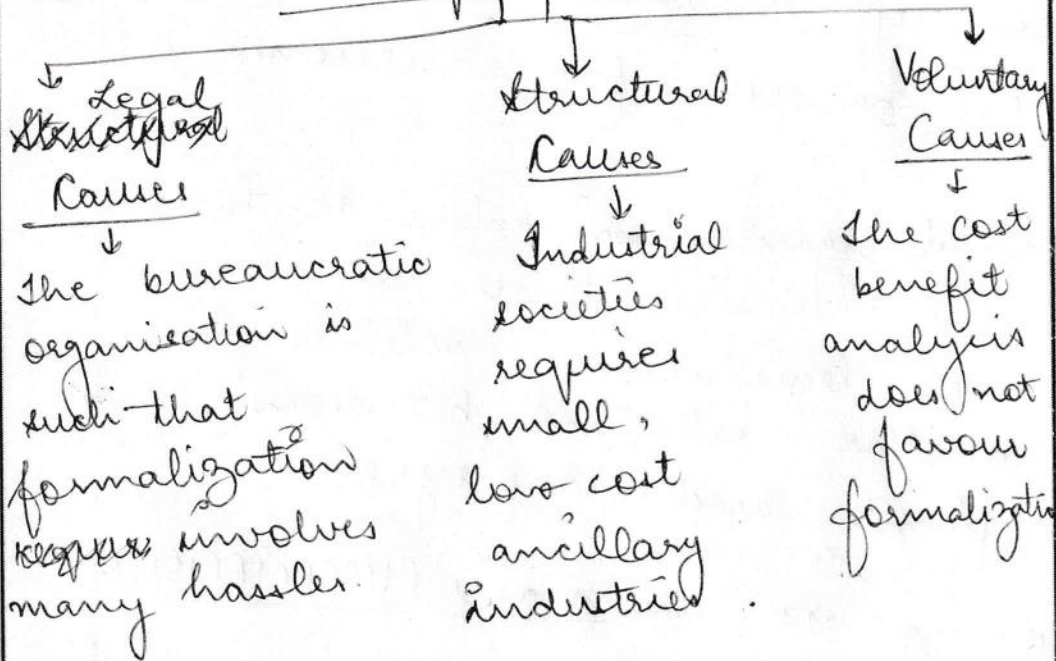 Legal
Causes
The bureaucratic
organisation is
such that
formalization
involves
many hassles.
Structural
Causes
Industrial
societies
requires
small,
low cost
ancillary
industries.
Voluntary
Causes
The cost
benefit
analysis
does not
favour
formalizatio